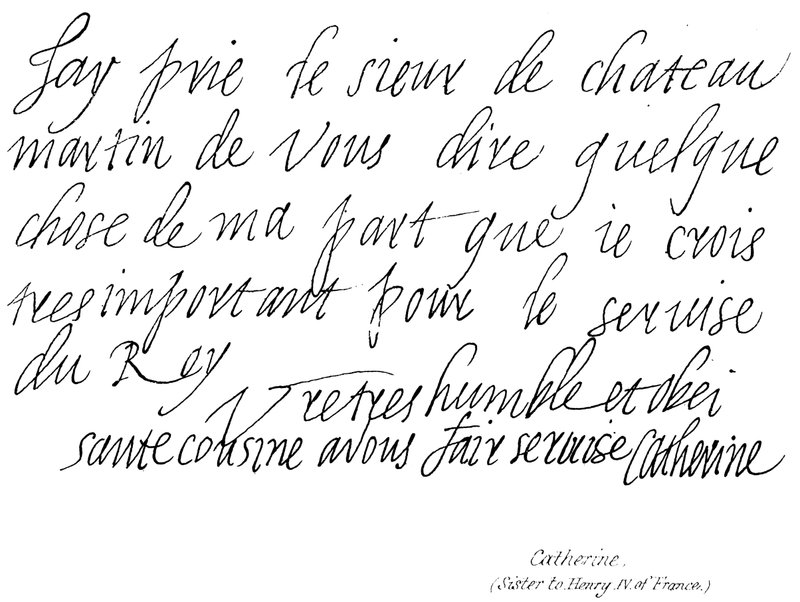 Jay prie le sieur de chateau
martin de vous dire quelque
chose de ma part que ie crois
tres important pour le seruise
du Rey
Vre tres humble et obei
sante cousine a vous fair seruise Catherine
Catherine.
(Sister to Henry IV. of France.)